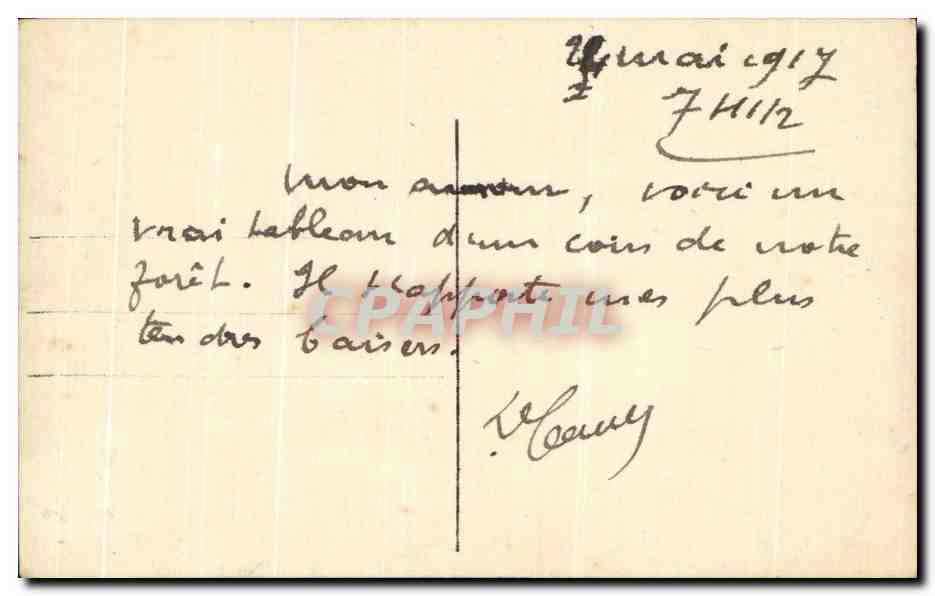 mai 1917
7H1/2
Mon amour, voici un
vrai tableau d'un coin de notre
forêt. Il t'apporte mes plus
tendres baisers.
CPAPHIL